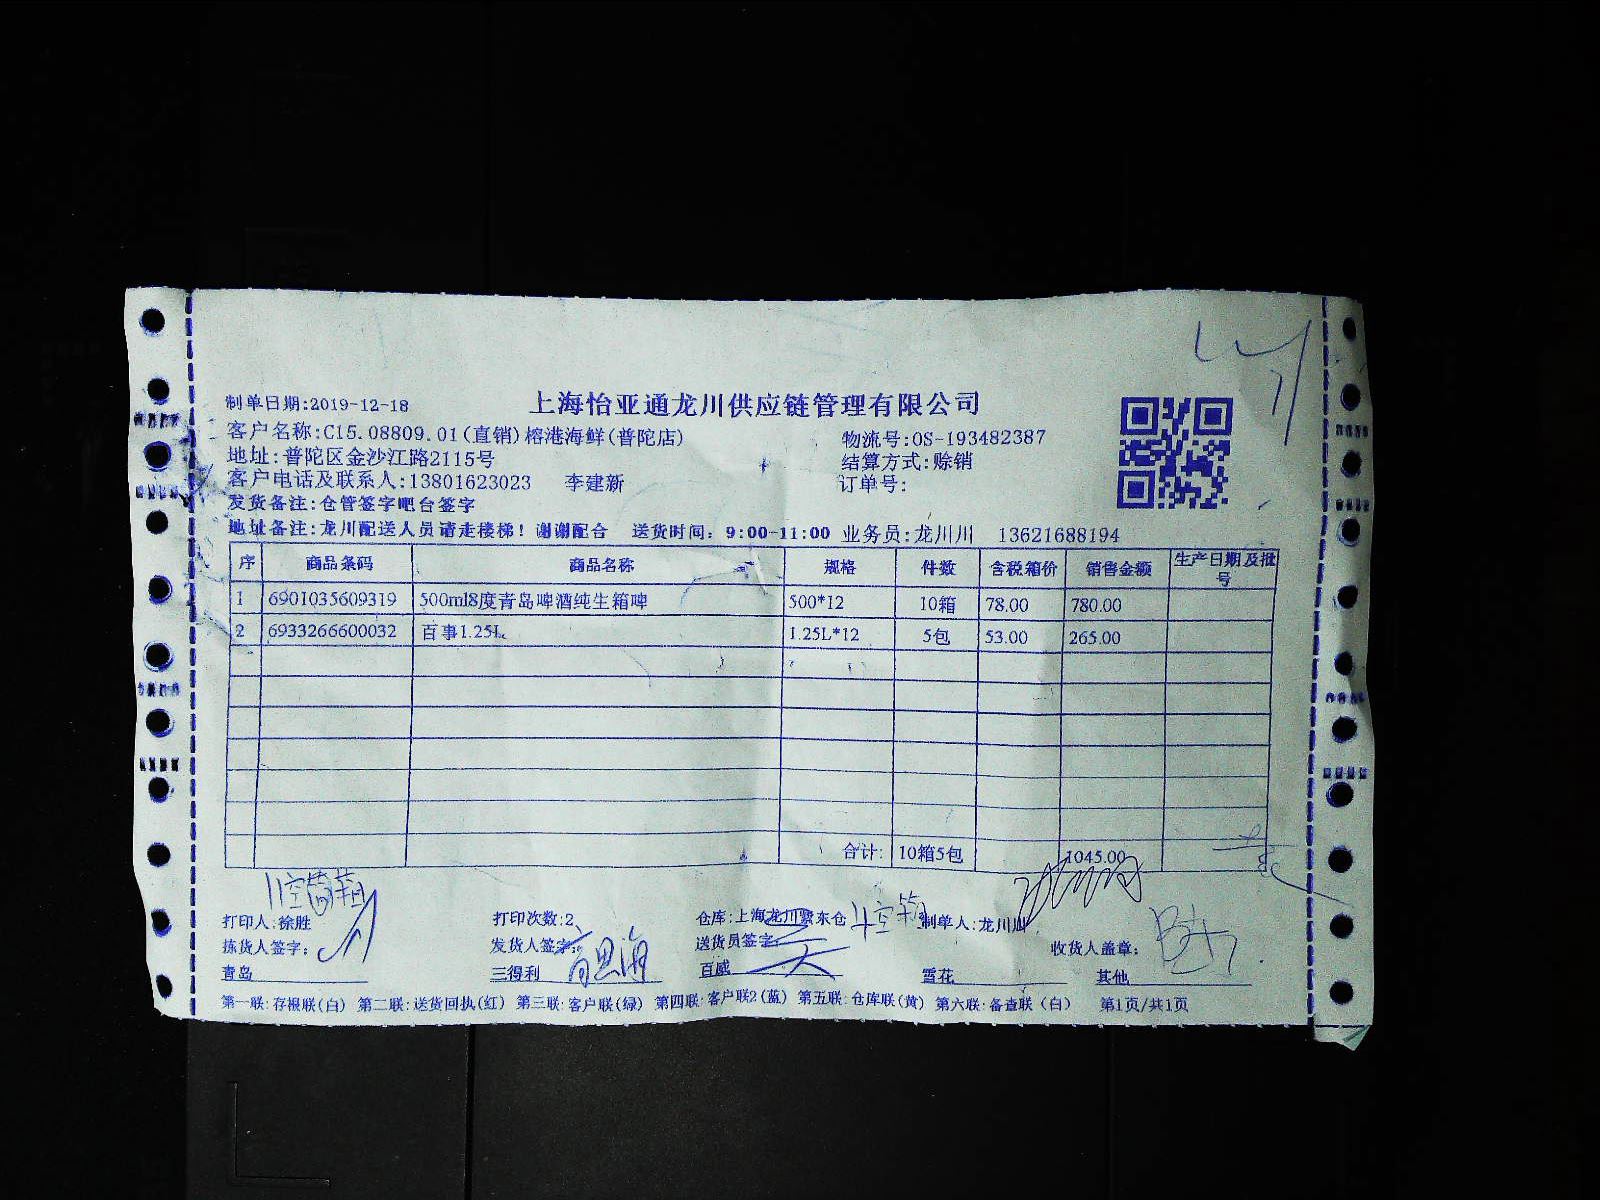 上海怡亚通龙川供应链管理有限公司
制单日期:2019-12-18
客户名称:C15.08809.01(直销)榕港海鲜(普陀店) 物流号:OS-193482387
地址:普陀区金沙江路2115号 结算方式:赊销
客户电话及联系人:13801623023 李建新 订单号:
发货备注:仓管签字吧台签字
地址备注:龙川配送人员请走楼梯！谢谢配合 送货时间: 9:00-11:00 业务员:龙川川 13621688194
序 商品条码 商品名称 规格 件数 含税箱价 销售金额 生产日期及批号
1 6901035609319 500ml8度青岛啤酒纯生箱啤 500*12 10箱 78.00 780.00
2 6933266600032 百事1.25L 1.25L*12 5包 53.00 265.00
合计: 10箱5包 1045.00
打印人:徐胜 打印次数:2 仓库:上海龙川 东仓 制单人:龙川川
拣货人签字: 发货人签字: 送货员签字: 收货人盖章:
青岛 三得利 百威 雪花 其他
第一联:存根联(白) 第二联:送货回执(红) 第三联:客户联(绿) 第四联:客户联2(蓝) 第五联:仓库联(黄) 第六联:备查联(白) 第1页/共1页